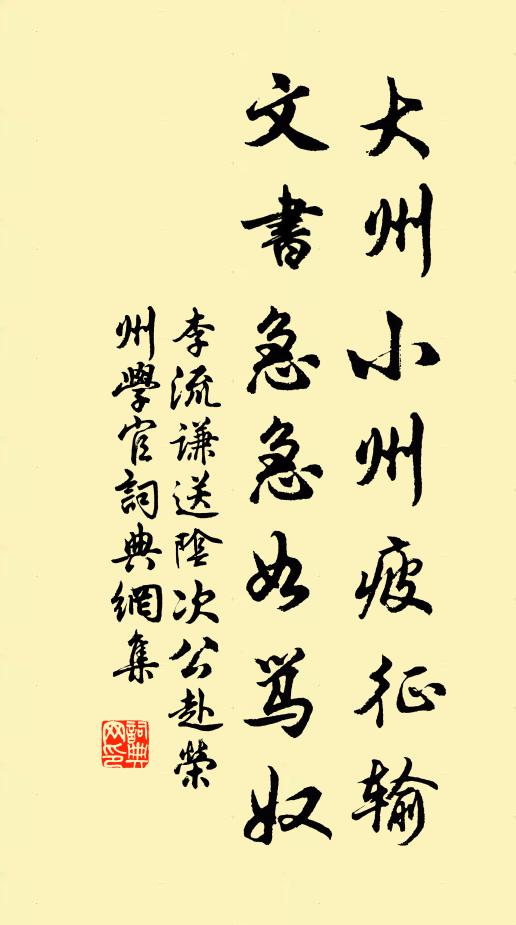 大州小州疲征输
文書急急如骂奴
李流謙送陰次公赴榮
州學官詞典網集
詞典
网印